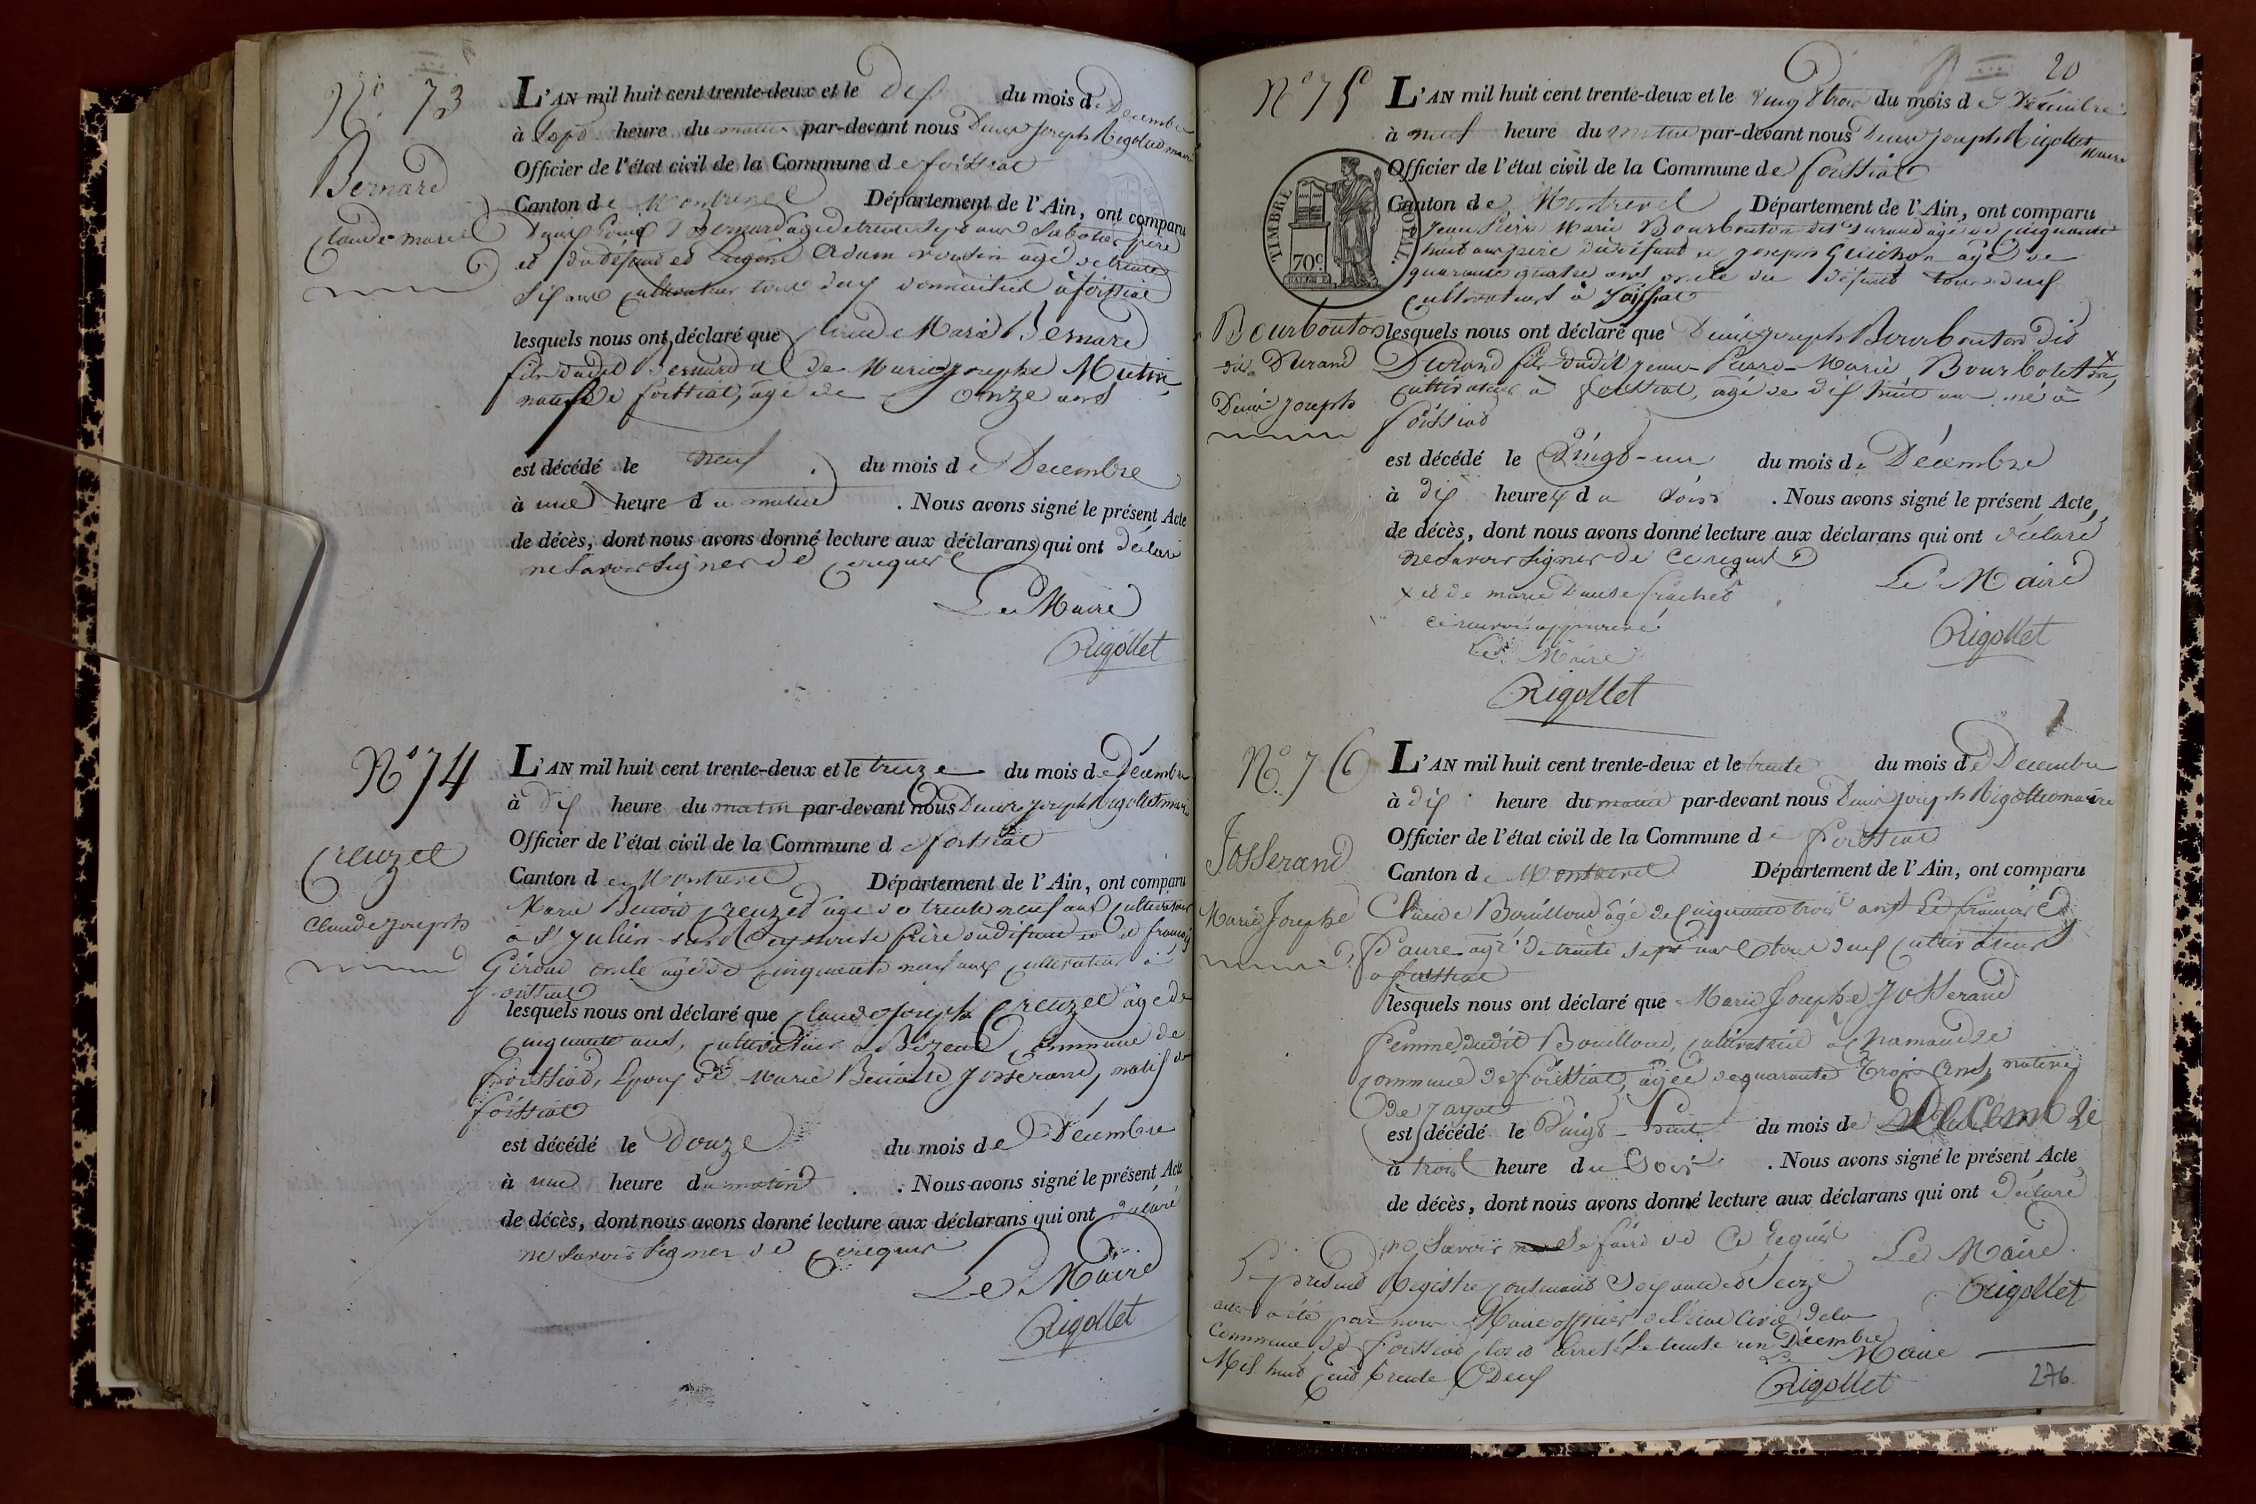 N° 73
L'AN mil huit cent trente-deux et le dix du mois de Décembre
à sept heure du matin par-devant nous Denis Joseph Rigollet maire
Officier de l'état civil de la Commune de foissiat
Bernard
Canton de Montrevel Département de l'Ain, ont comparu
Claude marie
Bernard agé de trente sept ans Sabotier père
du défunt et Adam voisin agé de trente
six ans cultivateur tous deux domiciliés à foissiat
lesquels nous ont déclaré que Claude Marie Bernard
fils dudit Bernard et de Marie Josephe Mutin
natif de foissiat, agé de onze ans
est décédé le neuf du mois de Décembre
à une heure du matin . Nous avons signé le présent Acte
de décès, dont nous avons donné lecture aux déclarans qui ont déclaré
ne savoir signer de ce requis
Le Maire
Rigollet
N° 74
L'AN mil huit cent trente-deux et le treize du mois de Décembre
à dix heure du matin par-devant nous Denis Joseph Rigollet maire
Officier de l'état civil de la Commune de foissiat
Creuzet
Canton de Montrevel Département de l'Ain, ont comparu
Claude Joseph
Marie Benoit Creuzet agé de trente neuf ans cultivateur
à St Julien sur Reyssouse frère du défunt et françois
Giroud oncle agé de cinquante neuf ans cultivateur à
foissiat
lesquels nous ont déclaré que Claude Joseph Creuzet agé de
cinquante ans, cultivateur à commune de
foissiat, Epoux de Marie Benoite Josserand, natif de
foissiat
est décédé le Douze du mois de Décembre
à une heure du matin . Nous avons signé le présent Acte
de décès, dont nous avons donné lecture aux déclarans qui ont déclaré
ne savoir signer de ce requis
Le Maire
Rigollet
20
N° 75
L'AN mil huit cent trente-deux et le vingt trois du mois de Décembre
à neuf heure du matin par-devant nous Denis Joseph Rigollet
maire
Officier de l'état civil de la Commune de foissiat
TIMBRE ROYAL
70c
Canton de Montrevel Département de l'Ain, ont comparu
Jean Pierre Marie Bourbouton dit Durand agé de cinquante
huit ans père du défunt et joseph Guichon agé de
quarante quatre ans oncle du défunt tous deux
cultivateurs à foissiat
Bourbouton
dit Durand
Denis Joseph
lesquels nous ont déclaré que Denis Joseph Bourbouton dit
Durand fils dudit Jean-Pierre-Marie Bourbouton x
cultivateur à foissiat, agé de dix huit ans né à
foissiat
est décédé le Vingt-un du mois de Décembre
à dix heures du soir . Nous avons signé le présent Acte
de décès, dont nous avons donné lecture aux déclarans qui ont déclaré
ne savoir signer de ce requis
Le Maire
x et de marie
ce renvoi approuvé
Rigollet
Le Maire
Rigollet
N° 76
L'AN mil huit cent trente-deux et le trente du mois de Décembre
à dix heure du matin par-devant nous Denis Joseph Rigollet maire
Officier de l'état civil de la Commune de foissiat
Josserand
Canton de Montrevel Département de l'Ain, ont comparu
Marie Josephe
Claude Bouilloud agé de cinquante trois ans et françois
faure agé de trente sept ans tous deux cultivateurs
à foissiat
lesquels nous ont déclaré que Marie Josephe Josserand
femme dudit Bouilloud, cultivatrice à
commune de foissiat, agée de quarante trois ans, native
de Jayat
est décédé le Vingt-huit du mois de Décembre
à trois heure du Soir . Nous avons signé le présent Acte
de décès, dont nous avons donné lecture aux déclarans qui ont déclaré
ne Savoir le faire de ce requis
Le Maire
Rigollet
Le présent Registre contenant Soixante et Seize
actes a été par nous Maire officier de l'état Civil de la
Commune de foissiat clos et arrêté le trente un Décembre
Mil huit cent trente Deux
Le Maire
Rigollet
276.